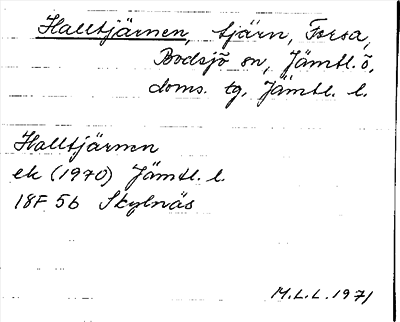 Halltjärnen, tjärn, Forsa,
Bodsjö sn, Jämtl. ö.
doms. tg, Jämtl. l.
Halltjärnen
ek (1970) Jämtl. l.
18F 5b Skylnäs
M.L.L. 1971